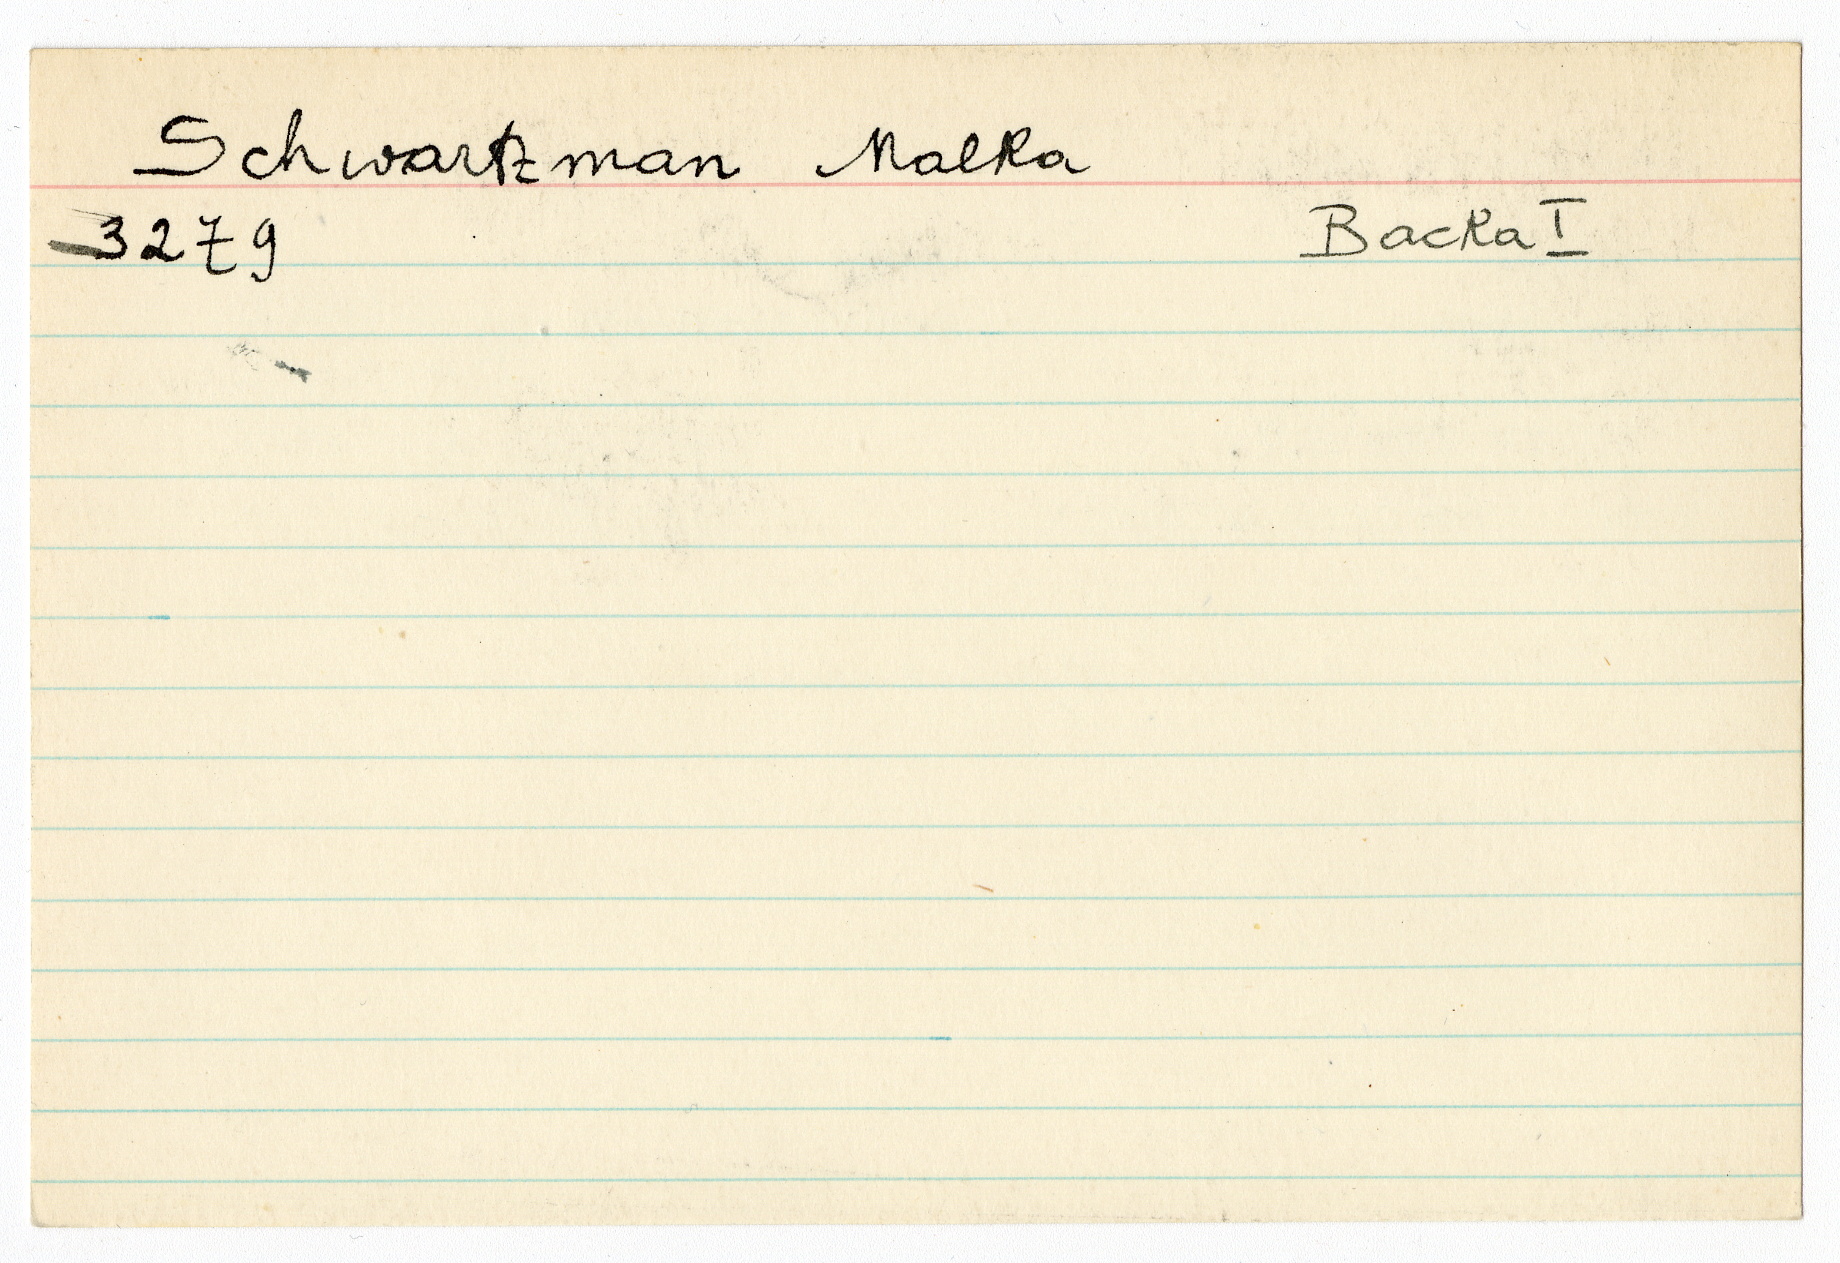 Schwartzman Malka
3279 Backa I